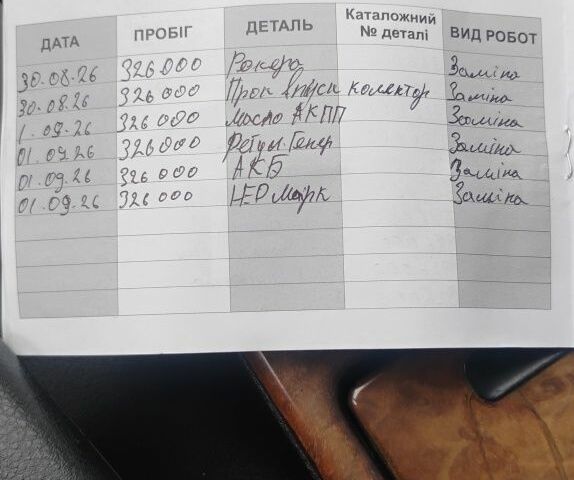 ДАТА ПРОБІГ ДЕТАЛЬ Каталожний № деталі ВИД РОБОТ
30.08.26 326000 Рокера Заміна
30.08.26 326000 Прок впуск колектор Заміна
1.09.26 326000 Масло АКПП Заміна
01.09.26 326000 Регул. Генер Заміна
01.09.26 326000 АКБ Заміна
01.09.26 326000 LED Заміна